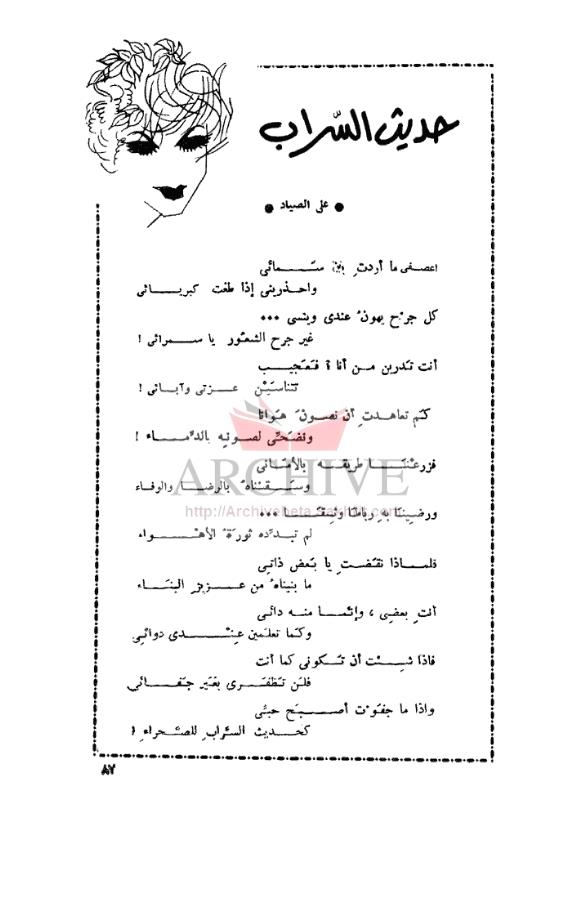 حديث السّراب
● على الصياد ●
اعصفى ما أردتِ سمائى
واحذرينى إذا طغت كبريائى
كل جرح يهونُ عندى وينسى ...
غير جرح الشعور يا سمرائى !
أنت تدرين من أنا ؟ فعجيب
تتناسينَ عزتى وآبائى !
كم تعاهدتِ أن نصونَ هوانا
ونضحّى لصونه بالدّماء !
فزرعْنا طريقه بالأمانى
وسقيْناه بالرضا والوفاء
ورضينا به رباطا وثيقا ...
لم تبدده ثورة الأهواء
فلماذا نقضتِ يا بعض ذاتى
ما بنيناه من عزيز البناء
أنتِ بعضى ، وإنما منه دائى
وكما تعلمين عندى دوائى
فاذا شئت أن تكونى كما أنت
فلن تظفرى بغير جفائى
واذا ما جفوْت أصبح حبّى
كحديث السّرابِ للصّحراءِ !
٨٧
ARCHIVE